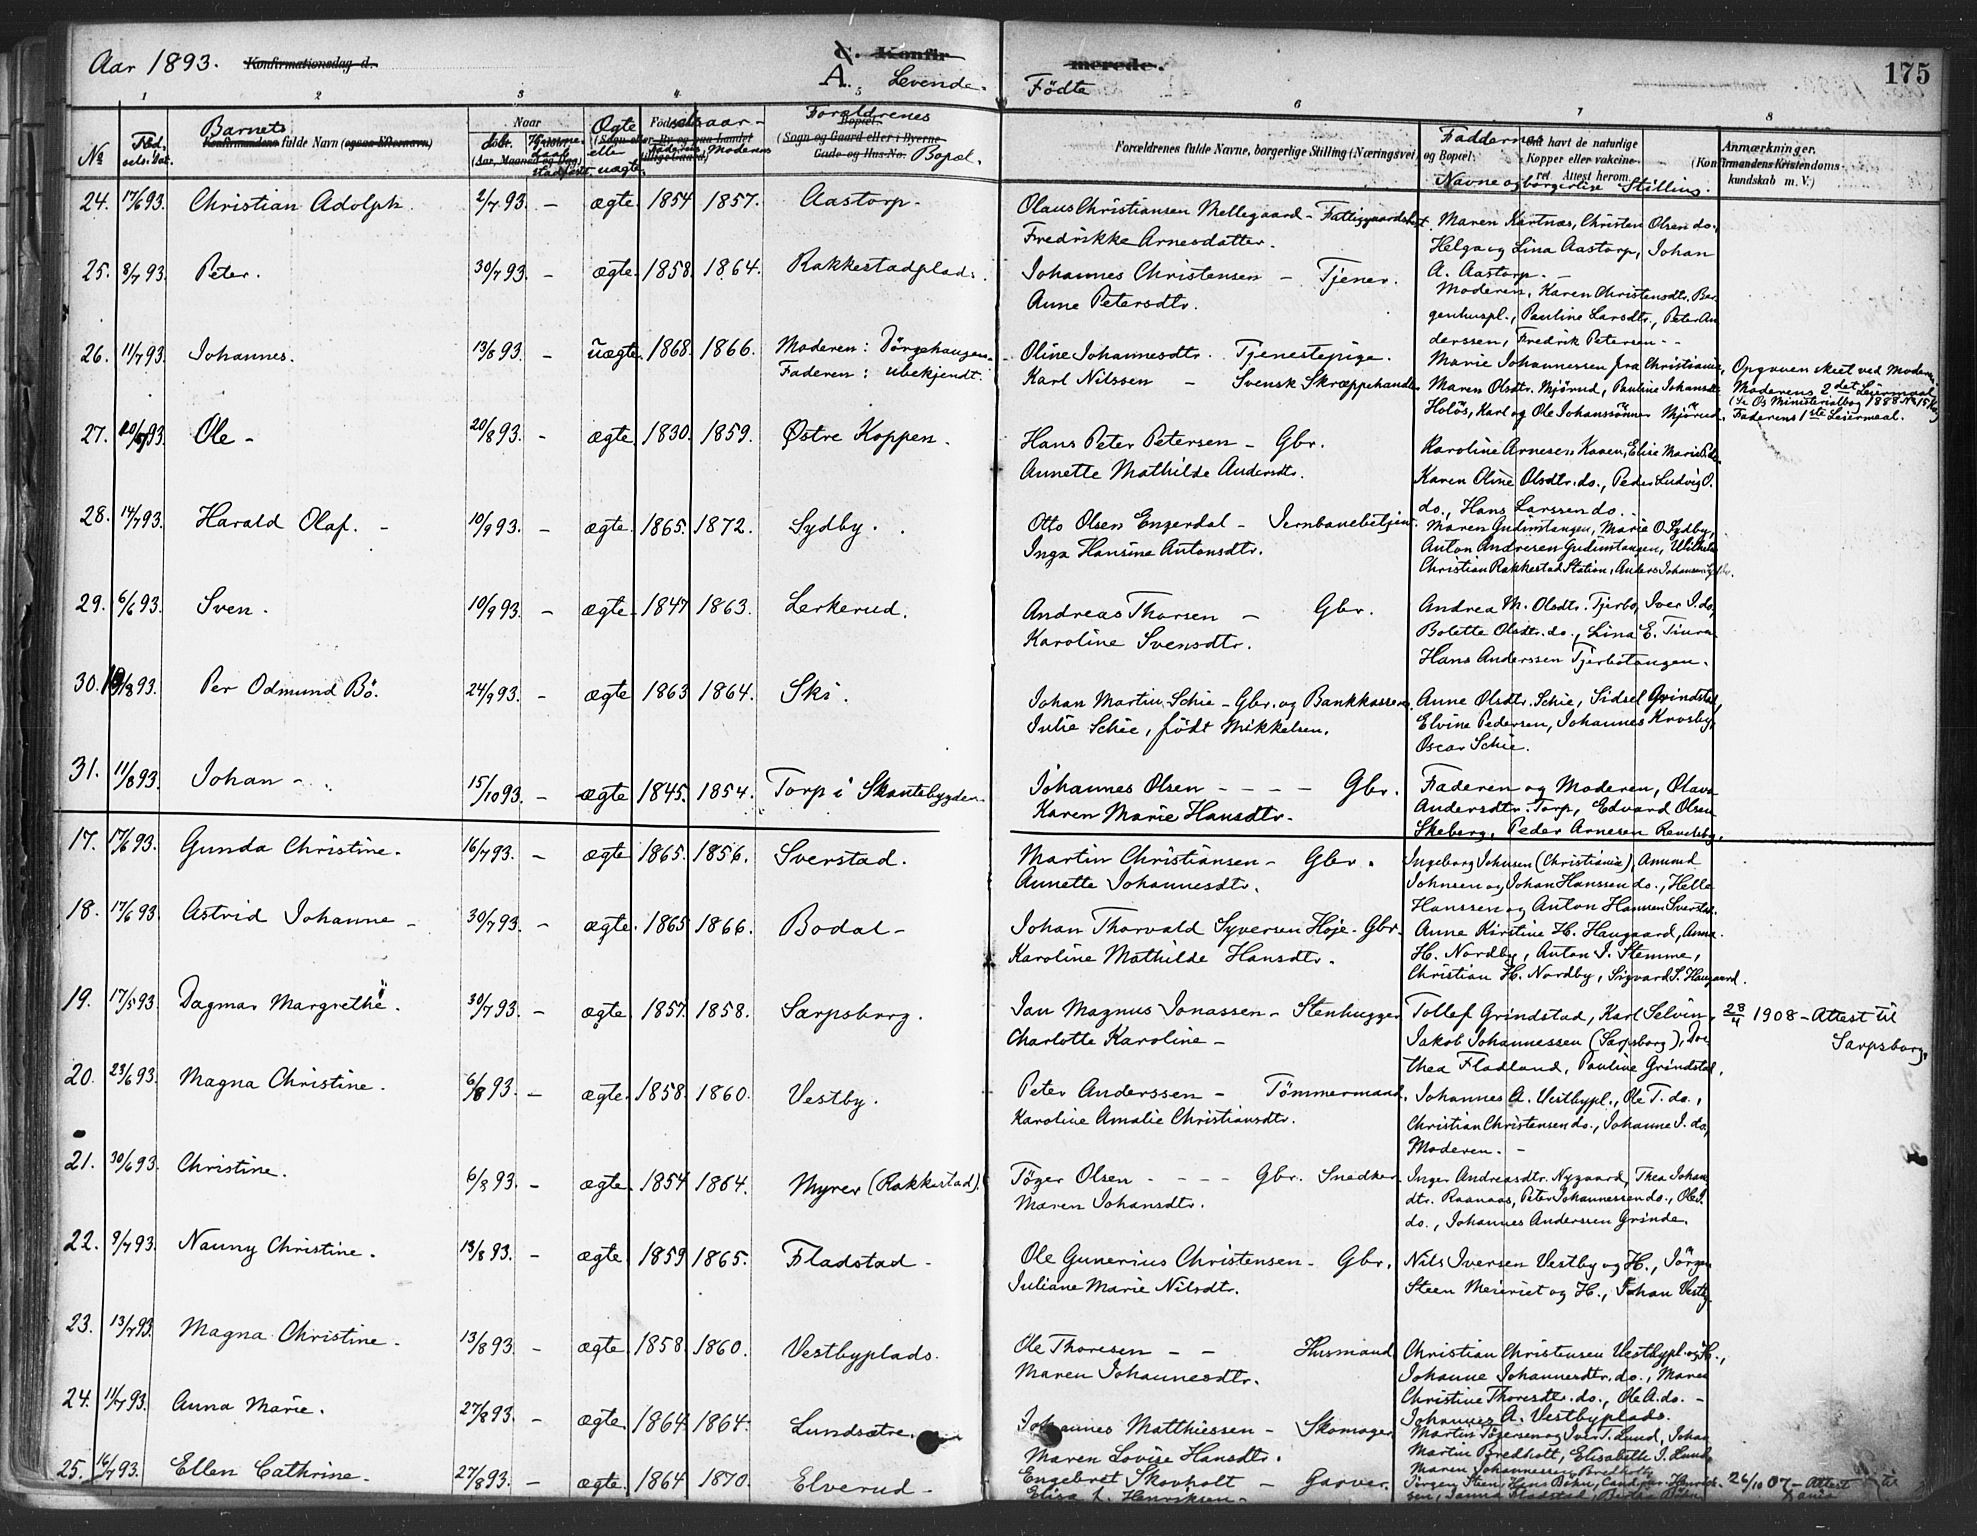 Aar 1893. Konfirmationsdag d.
C. Konfirmerede. 175
A. Levende Fødte
1 2 3 4 5 6 7 8
№ Fødselsdat. Barnets fulde Navn (ogsaa Efternavn) Naar døbt Ægte eller uægte Fødselsaar Faderens Moderens Forældrenes Bopæl.
Forældrenes fulde Navne, borgerlige Stilling (Næringsvei) og Bopæl. Faddernes Navne og borgerlige Stilling. Anmærkninger.
(Konfirmandens Kristendomskundskab m. V.)
24. 17/6 93. Christian Adolph. 2/7 93. – ægte 1854 1857. Aastorp. Olaus Christiansen Mellegaard – Fattiggaardsbest. Maren Kertnæs, Christen Olsen do.,
Fredrikke Arnesdatter. Helga og Lina Aastorp, Johan
A. Aastorp. –
25. 8/7 93. Peter. 30/7 93. – ægte 1858 1864. Rakkestadplads. Johannes Christensen – Tjener. Moderen, Karen Christensdtr. Ber-
Anne Petersdtr. genhuspl., Pauline Larsdtr., Peter An
derssen, Fredrik Petersen – –
26. 11/7 93. Johannes. 13/8 93. – uægte 1868. 1866. Moderen: Dørgehaugen Oline Johannesdtr. Tjenestepige. Marie Johannessen fra Christiania, Opgaven skeet ved Moderen.
Faderen: ubekjendt. Karl Nilssen – Svensk Skræppehandler Maren Olsdtr. Mjørud, Pauline Johansdtr. Moderens 2det Leiermaal
Holøs, Karl og Ole Johanssønner Mjørud. (Se Ministerialbog 1888 № 15)
Faderens 1ste Leiermaal.
27. 20/5 93. Ole – 20/8 93. – ægte 1830. 1859. Østre Koppen. Hans Peter Petersen – Gbr. Karoline Arnesen Kaaen, Elise Marie P. do.
Annette Mathilde Andersdtr. Karen Oline Olsdtr. do., Peder Ludvig P.
do., Hans Larssen do.
28. 14/7 93. Harald Olaf. – 10/9 93. – ægte 1865. 1872. Sydby. Otto Olsen Engerdal – Jernbanebetjent. Maren Gudimstangen, Marie O. Sydby,
Inga Hansine Antonsdtr. Anton Andresen Gudimstangen, Wilhelm
Christian Rakkestad Station, Anders Johansen Sydby.
29. 6/6 93. Sven. 10/9 93. – ægte 1847 1863. Lerkerud. Andreas Thorsen – Gbr. Andrea M. Olsdtr. Tjerbo, Iver I. do,
Karoline Svensdtr. Bolette Olsdtr. do., Lina E. Tiuren
Hans Anderssen Tjerbotangen.
30. 19/8 93. Per Odmund Bö. 24/9 93. – ægte 1863 1864. Ski. Johan Martin Schie – Gbr. og Bankkasserer. Anne Olsdtr. Schie, Sidsel Grindstad,
Julie Schie, født Mikkelsen. Elvine Pedersen, Johannes Krosby,
Oscar Schie.
31. 11/8 93. Johan – 15/10 93. – ægte 1845. 1854. Torp i Skantebygden Johannes Olsen – – – – Gbr. Faderen og Moderen, Olava
Karen Marie Hansdtr. Andersdtr. Torp, Edvard Olsen
Skeberg, Peder Arnesen Reveteby.
17. 17/6 93. Gunda Christine. 16/7 93. – ægte 1865. 1856. Sverstad. Martin Christiansen – Gbr. Ingeborg Johnsen (Christiania), Amund
Annette Johannesdtr. Johnsen og Johan Hanssen do., Helle
Hanssen og Anton Hansen Sverstad.
18. 17/6 93. Astrid Johanne – 30/7 93. – ægte. 1865 1866. Bodal – Johan Thorvald Syversen Høje – Gbr. Anne Kirstine H. Haugaard, Anna
Karoline Mathilde Hansdtr. H. Nordby, Anton I. Stemme,
Christian H. Nordby, Sigvard S. Haugaard.
19. 17/5 93. Dagmar Margrethe. 30/7 93. – ægte 1857. 1858. Sarpsborg. Jan Magnus Jonassen – Stenhugger Tollef Grindstad, Karl Selvin, 28/4 1908 – Attest til
Charlotte Karoline – Jakob Johannessen (Sarpsborg), Do- Sarpsborg.
thea Fladlund, Pauline Grindstad,
20. 23/6 93. Magna Christine. 6/8 93. – ægte. 1858 1860. Vestby. Peter Anderssen – Tømmermand. Johannes A. Vestbypl., Ole T. do.,
Karoline Amalie Christiansdtr. Christian Christensen do., Johanne I. do,
Moderen. –
21. 30/6 93. Christine. 6/8 93. – ægte. 1854 1864. Myrer (Rakkestad) Tøger Olsen – – – Gbr. Snedker Inger Andreasdtr. Nygaard, Thea Johan
Maren Johansdtr. dtr. Raanaas, Peter Johannessen do., Ole I.
do., Johannes Anderssen Grinde.
22. 9/7 93. Nanny Christine. 13/8 93. – ægte 1859 1865. Fladstad – Ole Gunerius Christensen – Gbr. Nils Iversen Vestby og H., Jørgen
Juliane Marie Nilsdtr. Steen Meieriet og H., Johan Vestby
23. 13/7 93. Magna Christine. 13/8 93. – ægte. 1858. 1860. Vestbyplads. Ole Thoresen – – Husmand Christian Christensen Vestbypl. og H.,
Maren Johannesdtr. Johanne Johannesdtr. do., Maren
Christine Thoresdtr. do., Ole A. do. –
Johannes A. Vestbyplads.
24. 11/7 93. Anna Marie. 27/8 93. – ægte 1864 1864. Lundsætre. Johannes Matthiessen – Skomager Martin Tøgersen og Iver T. Lund, Johan
Maren Lovise Hansdtr. Martin Bredholt, Elisabeth I. Lund,
Maren Johannessen Bredholt
25. 16/7 93. Ellen Cathrine. 27/8 93. – ægte 1864 1870. Elverud – Engebret Skovholt – Garver. Jørgen Steen, Hans Bøhn, Cand. jur. Henrik- 26/10 07 – Attest til
Elisa f. Henriksen – sen, Janna Fladstad,